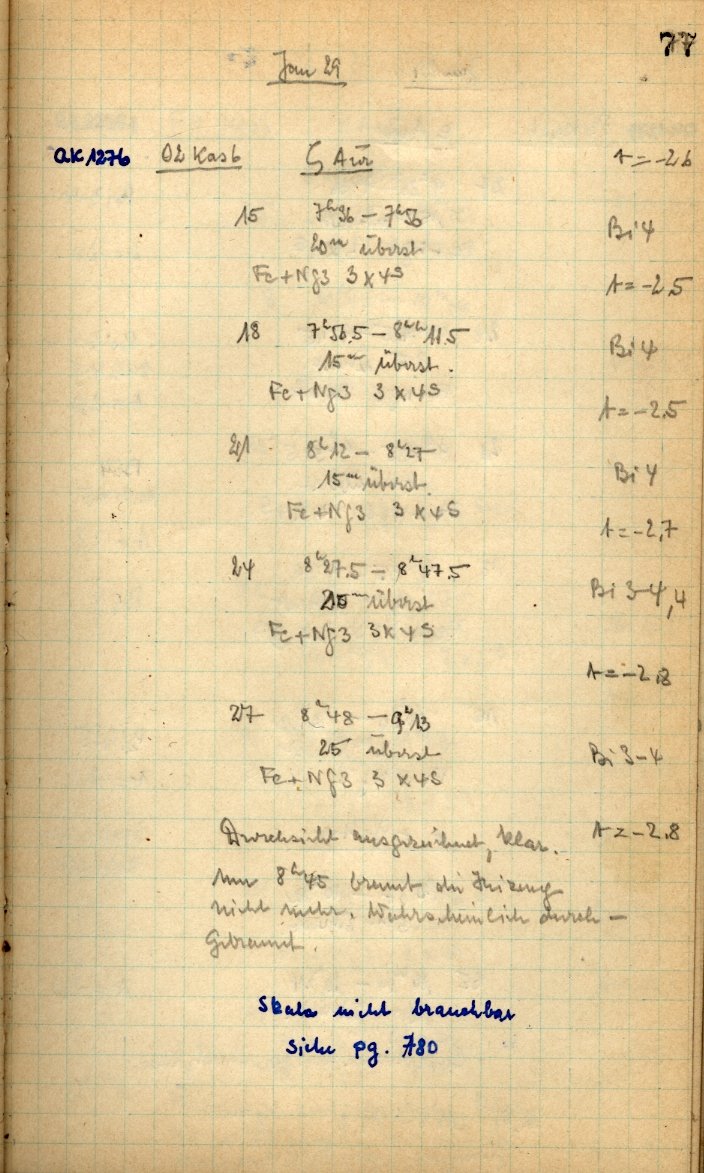 77
Jan 29
QK1276 02 Kas 6 ζ Aur t = -2.6
15 7h36 – 7h56 Bi 4
20m überst
Fe+Ng3 3x4S t = -2.5
18 7h56.5 – 8h11.5 Bi 4
15m überst.
Fe+Ng3 3x4S t = -2.5
21 8h12 – 8h27 Bi 4
15m überst.
Fe+Ng3 3x4S t = -2,7
24 8h27.5 – 8h47.5 Bi 3-4,4
20m überst
Fe+Ng3 3x4S t = -2.8
27 8h48 – 9h13
25 überst Bi 3-4
Fe+Ng3 3x4S
Durchsicht ausgezeichnet, klar. t = -2.8
Um 8h45 brennt die Heizung
nicht mehr. Wahrscheinlich durch-
gebrannt.
Skala nicht brauchbar
Siehe pg. 780